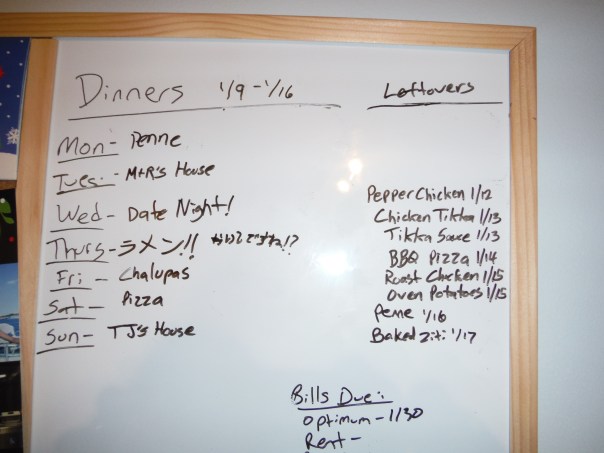 Dinners 1/9 - 1/16
Mon - Penne
Tues: - M+R's House
Wed - Date Night!
Thurs - ラメン!!
Fri - Chalupas
Sat - Pizza
Sun - TJ's House
Leftovers
Pepper Chicken 1/12
Chicken Tikka 1/13
Tikka Sauce 1/13
BBQ Pizza 1/14
Roast Chicken 1/15
Oven Potatoes 1/15
Penne 1/16
Baked Ziti 1/17
Bills Due:
Optimum - 1/30
Rent -